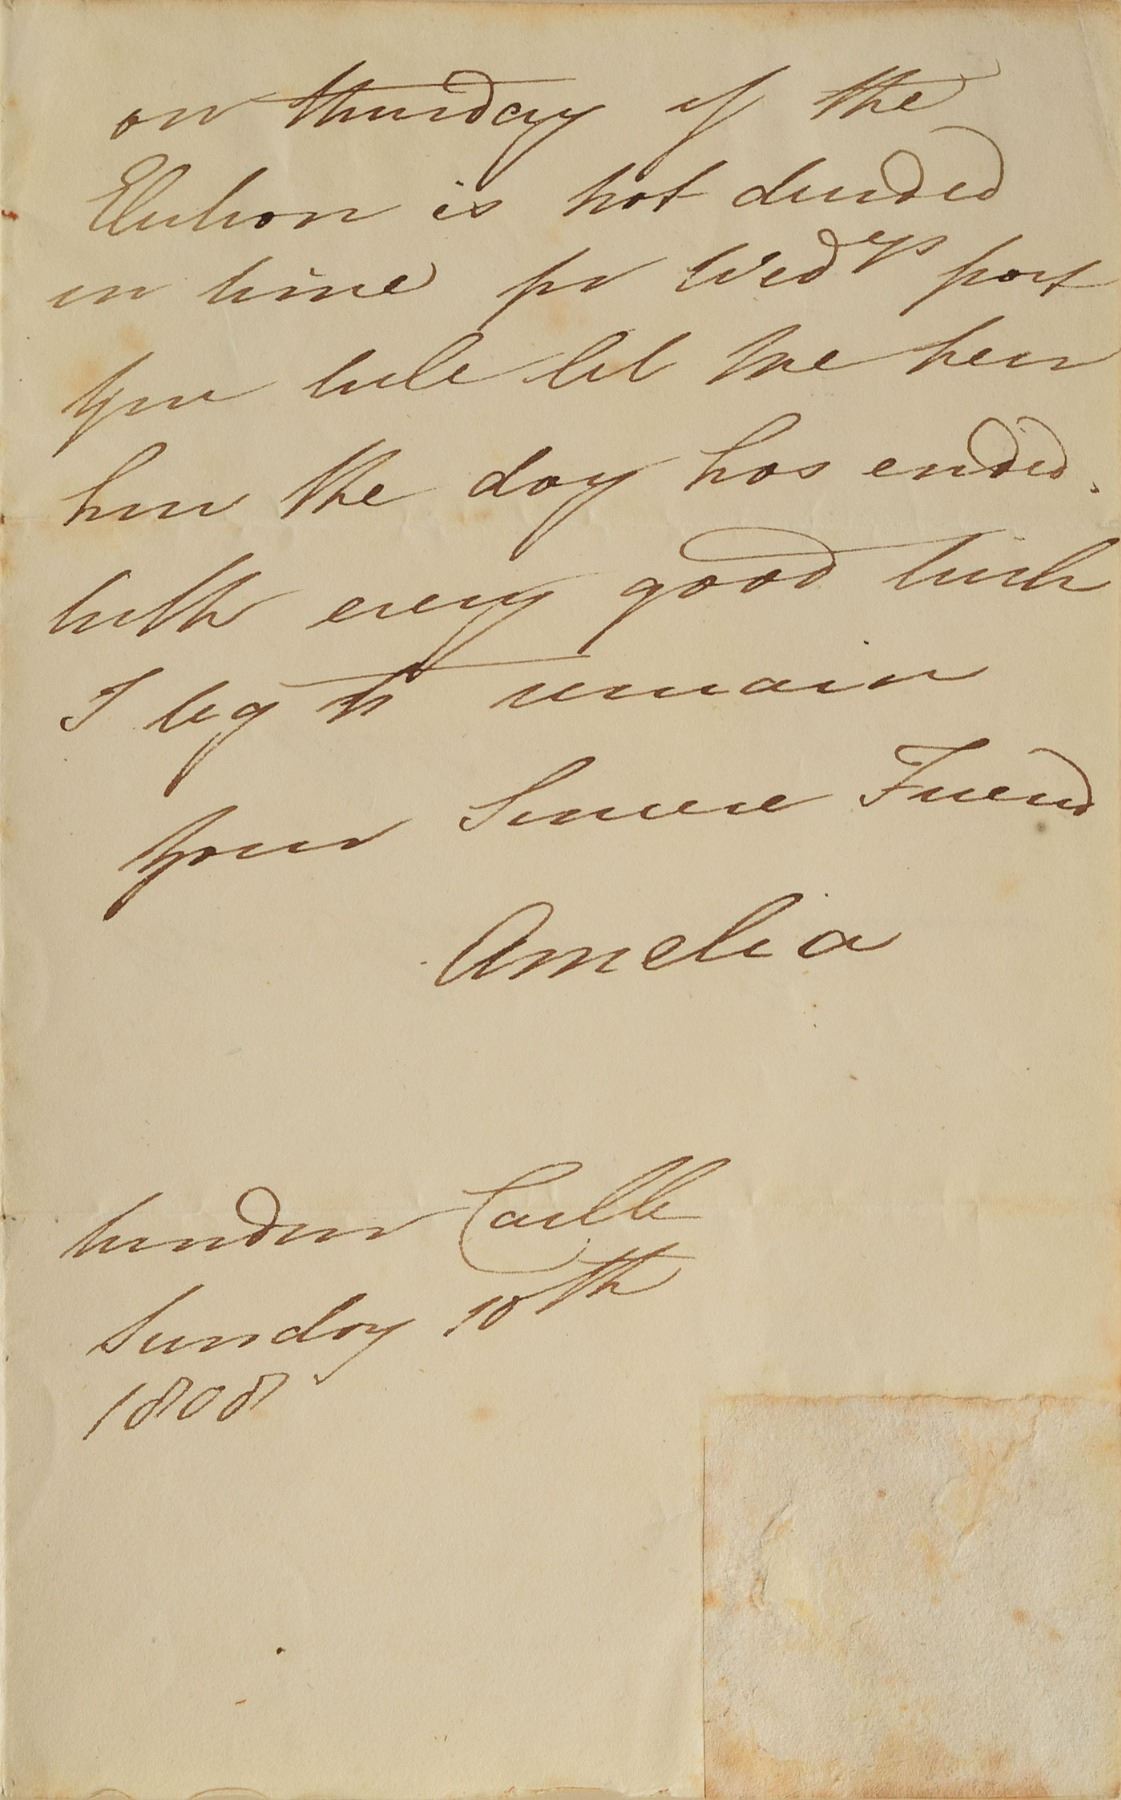 on thursday if the
Election is not decided
in time for Wed^ys post
you will let me hear
how the day has ended.
with every good wish
I beg to remain
your Sincere Friend
Amelia
Windsor Castle
Sunday 10th
1808